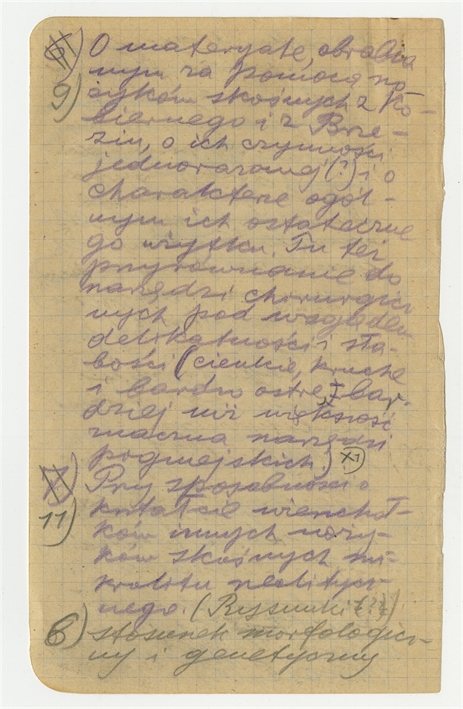 9) O materyale, obrabia
nym za pomocą no
żyków skośnych z Ko-
biernego i z Brze-
zin, o ich czynności
jednorazowej (?) i o
charakterze ogól-
nym ich ostateczne
go użytku. Tu też
przyrównanie do
narzędzi chirurgicz
nych pod względem
delikatności i sła-
bości (cienkie, kruche
i bardzo ostre, bar-
dziej niż większość
znaczna narzędzi
pigmejskich)
Przy sposobności o
11) kształcie wierzchoł-
ków innych noży-
ków skośnych mi-
krolitu neolitycz-
nego. (Rysunki?)
6) stosunek morfologicz-
ny i genetyczny